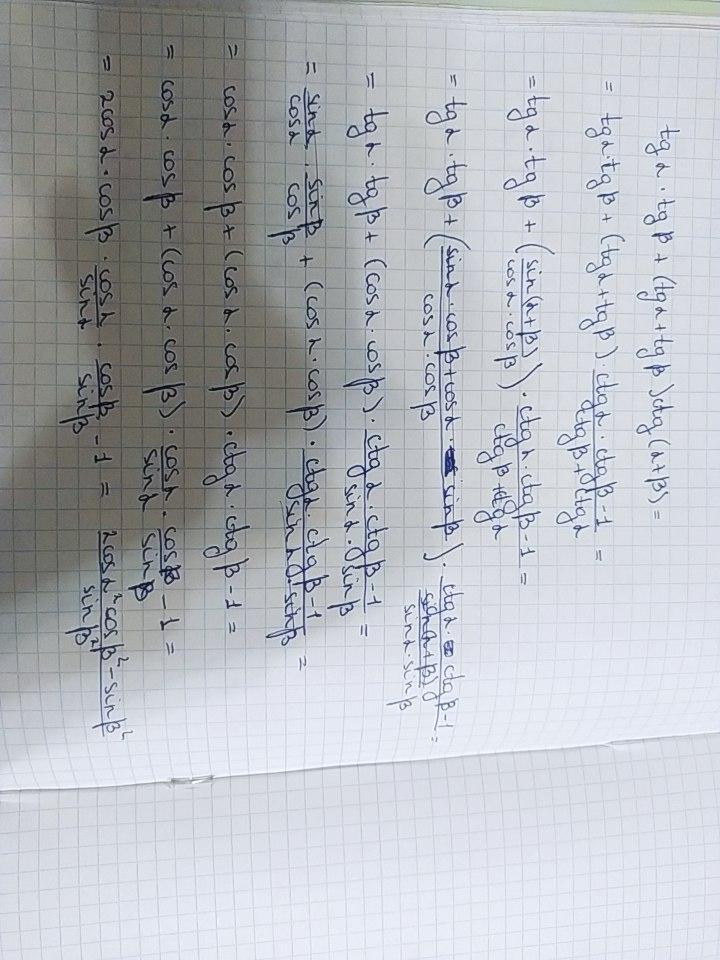 tg α · tg β + (tg α + tg β) ctg (α+β) =
= tg α · tg β + (tg α + tg β) · (ctg α · ctg β - 1)/(ctg β + ctg α) =
= tg α · tg β + (sin(α+β)/(cos α · cos β)) · (ctg α · ctg β - 1)/(ctg β + ctg α) =
= tg α · tg β + ((sin α · cos β + cos α · sin β)/(cos α · cos β)) · (ctg α · ctg β - 1)/(sin(α+β)/(sin α · sin β)) =
= tg α · tg β + (cos α · cos β) · (ctg α · ctg β - 1)/(sin α · sin β) =
= sin α/cos α · sin β/cos β + (cos α · cos β) · (ctg α · ctg β - 1)/(sin α · sin β) =
= cos α · cos β + (cos α · cos β) · ctg α · ctg β - 1 =
= cos α · cos β + (cos α · cos β) · cos α/sin α · cos β/sin β - 1 =
= 2cos α · cos β · cos α/sin α · cos β/sin β - 1 = (2cos α² cos β² - sin β²)/(sin β²)